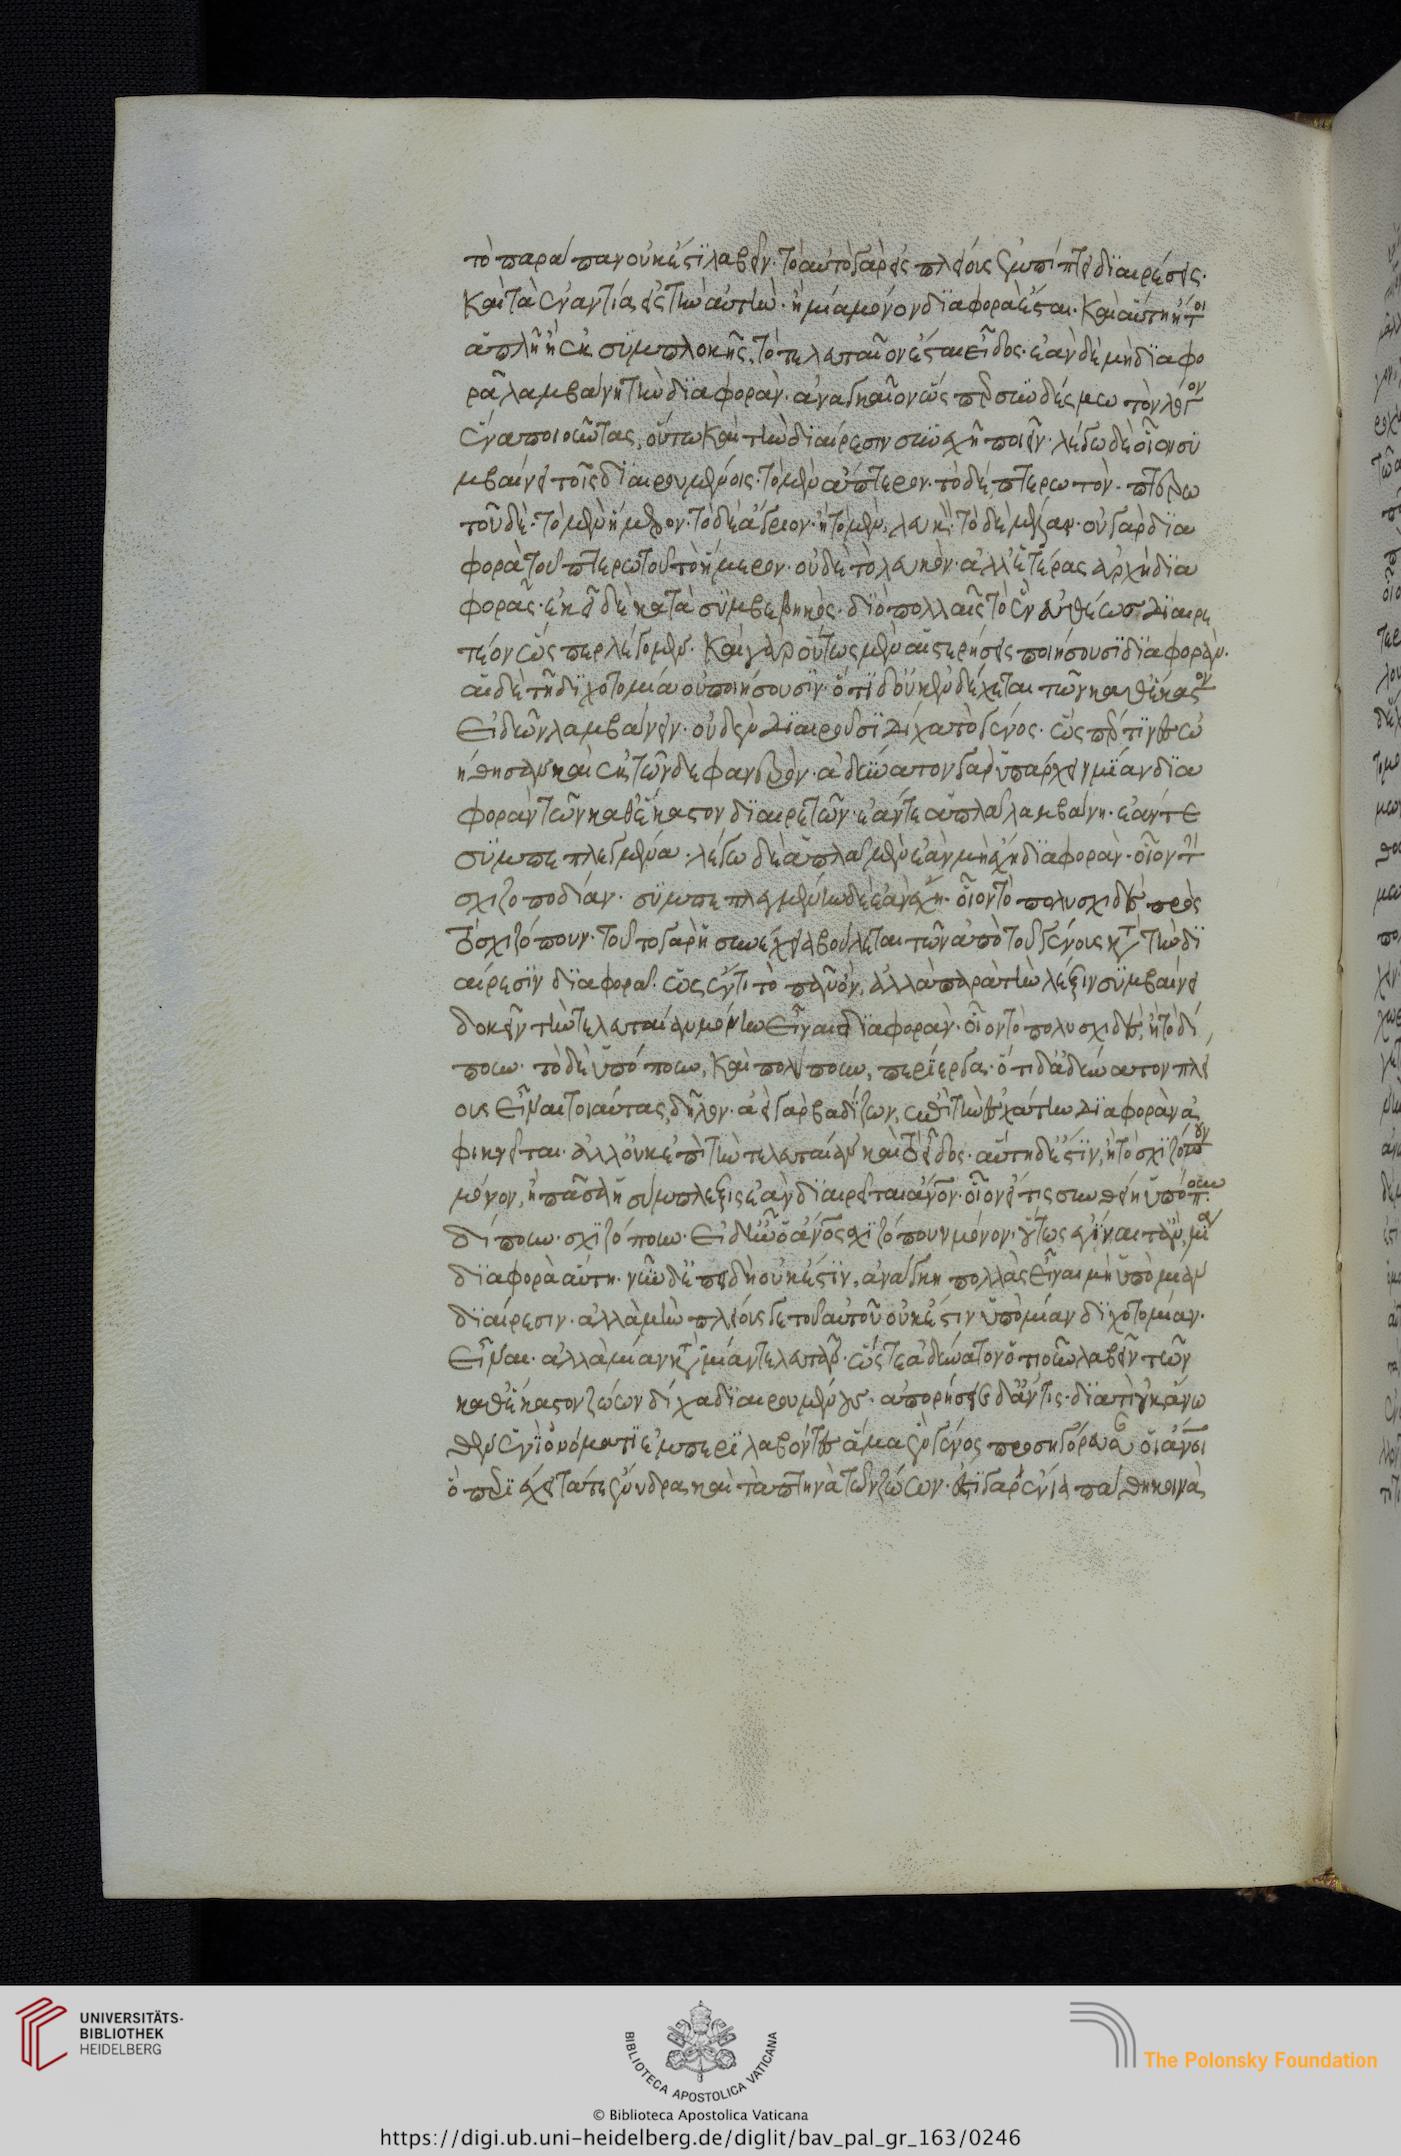 τὸ παράπαν οὐκ ἔστι λαβεῖν· τὸ αὐτὸ γὰρ εἰς πλείους ἐμπίπτει διαιρέσεις·
Καὶ τὰ ἐναντία εἰς τὴν αὐτὴν· ἢ μία μόνον διαφορὰ ἔσται· Καὶ αὕτη ἤτοι
ἁπλῆ ἢ ἐκ συμπλοκῆς, τὸ τελευταῖον ἔσται εἶδος· ἐὰν δὲ μὴ διαφο
ρᾶς λαμβάνη τὴν διαφορὰν· ἀναγκαῖον ὥσπερ συνδέσμω τὸν λόγον
ἕνα ποιοῦντας, οὕτω καὶ τὴν διαίρεσιν συνεχῆ ποιεῖν· λέγω δὲ οἷον συ
μβαίνει τοῖς διαιρουμένοις· τὸ μὲν ἄπτερον· τὸ δὲ πτερωτὸν· πτερω
τοῦ δὲ· τὸ μὲν ἥμερον· τὸ δὲ ἄγριον· ἢ τὸ μὲν, λευκὸν· τὸ δὲ μέλαν· οὐ γὰρ δια
φορὰ τοῦ πτερωτοῦ τὸ ἥμερον· οὐδὲ τὸ λευκὸν· ἀλλ' ἑτέρας ἀρχὴ δια
φορᾶς· ἐκεῖ δὲ κατὰ συμβεβηκὸς· διὸ πολλαῖς τὸ ἓν εὐθέωσ διαιρε
τέον ὥσπερ λέγομεν· Καὶ γὰρ οὕτως μὲν αἱ στερήσεις ποιήσουσι διαφορὰν·
αἱ δὲ τῆ διχοτομία οὐ ποιήσουσιν· ὅτι δ' οὐκ ἐνδέχεται τῶν καθ' ἕκαστον
Εἰδῶν λαμβάνειν· οὐδὲν διαιροῦσι δίχα τὸ γένος· ὥσπερ τινὲς ὠ
ήθησαν καὶ ἐκ τῶνδε φανερὸν· ἀδύνατον γὰρ ὑπάρχειν μίαν δια
φορὰν τῶν καθ' ἕκαστον διαιρετῶν· ἐάν τε ἁπλᾶ λαμβάνη· ἐάν τε
συμπεπλεγμένα· λέγω δὲ ἁπλᾶ μὲν ἐὰν μὴ ἔχη διαφορὰν· οἷον τὴν
σχιζοποδίαν· συμπεπλεγμένην δὲ ἐὰν ἔχη· οἷον τὸ πολυσχιδὲς πρὸς
τὸ σχιζόπουν· τοῦτο γὰρ ἡ συνέχεια βούλεται τῶν ἀπὸ τοῦ γένους κατὰ τὴν δι
αίρεσιν διαφορῶν· ὡς ἕν τι τὸ πᾶν ὂν, ἀλλὰ παρὰ τὴν λέξιν συμβαίνει
δοκεῖν τὴν τελευταίαν μόνην εἶναι διαφορὰν· οἷον τὸ πολυσχιδὲς, ἢ τὸ δί
πουν· τὸ δὲ ὑπόπουν, καὶ πολύπουν, περίεργα· ὅτι δ' ἀδύνατον πλεί
ους εἶναι τοιαύτας, δῆλον· ἀεὶ γὰρ βαδίζων, ἐπὶ τὴν ἐσχάτην διαφορὰν ἀ
φικνεῖται· ἀλλ' οὐκ ἐπὶ τὴν τελευταίαν καὶ τὸ εἶδος· αὕτη δέ ἐστιν, ἢ τὸ σχιζόπουν
μόνον, ἢ πᾶσα ἡ σύμπλεξις ἐὰν διαιρεῖται ἄνθρωπον· οἷον εἴ τις συνθείη ὑπόπουν
δίπουν· σχιζόπουν· Εἰ δ' ἦν ὁ ἄνθρωπος σχιζόπουν μόνον· οὕτως γίγνεται ἂν, μία
διαφορὰ αὕτη· νῦν δ' ἐπειδὴ οὐκ ἔστιν, ἀνάγκη πολλὰς εἶναι μὴ ὑπὸ μίαν
διαίρεσιν· ἀλλὰ μὴν πλείους γε τοῦ αὐτοῦ οὐκ ἔστιν ὑπὸ μίαν διχοτομίαν·
Εἶναι· ἀλλὰ μίαν κατὰ μίαν τελευτᾶν· ὥστε ἀδύνατον ὁτιοῦν λαβεῖν τῶν
καθ' ἕκαστον ζώων δίχα διαιρουμένους· ἀπορήσειε δ' ἄν τις· διὰ τί οὐκ ἄνω
θεν ἑνὶ ὀνόματι ἐμπεριλαβόντες ἅμα ἓν γένος προσηγόρευσαν οἱ ἄνθρωποι
ὃ περιέχει τά τε ἔνυδρα καὶ τὰ πτηνὰ τῶν ζώων· ἔστι γὰρ ἔνια πάθη κοινὰ
UNIVERSITÄTS-
BIBLIOTHEK
HEIDELBERG
BIBLIOTECA APOSTOLICA VATICANA
The Polonsky Foundation
© Biblioteca Apostolica Vaticana
https://digi.ub.uni-heidelberg.de/diglit/bav_pal_gr_163/0246